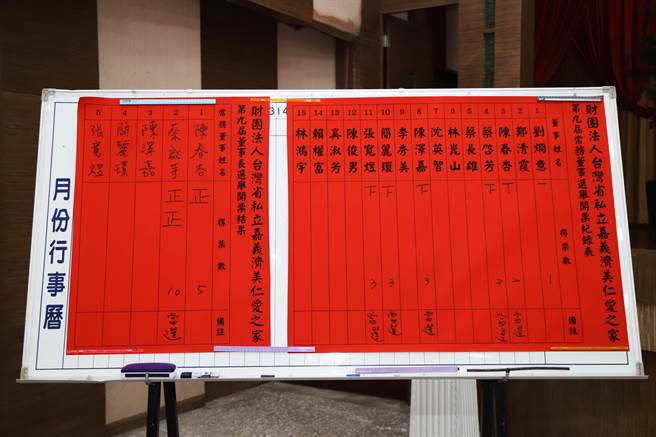 月份行事曆
314
財團法人台灣省私立嘉義濟美仁愛之家
第九屆常務董事選舉開票紀錄表
董事姓名 得票數 備註
1 劉炯意 一 1
2 鄭清霞 2 當選
3 陳春杏 下 3 當選
4 蔡啓芳 下
5 蔡長雄
6 林崑山
7 沈英智
8 陳澤嘉 下 3 當選
9 李秀美
10 簡麗環 下 3 當選
11 張寬煜 下 3 當選
12 陳俊男
13 奚淑芳
14 賴權富
15 林鴻宇
財團法人台灣省私立嘉義濟美仁愛之家
第九屆董事長選舉開票結果
常務董事姓名 得票數 備註
1 陳春杏 正 5
2 蔡啟芳 正正 10 當選
3 陳澤嘉
4 簡麗環
5 張寬煜